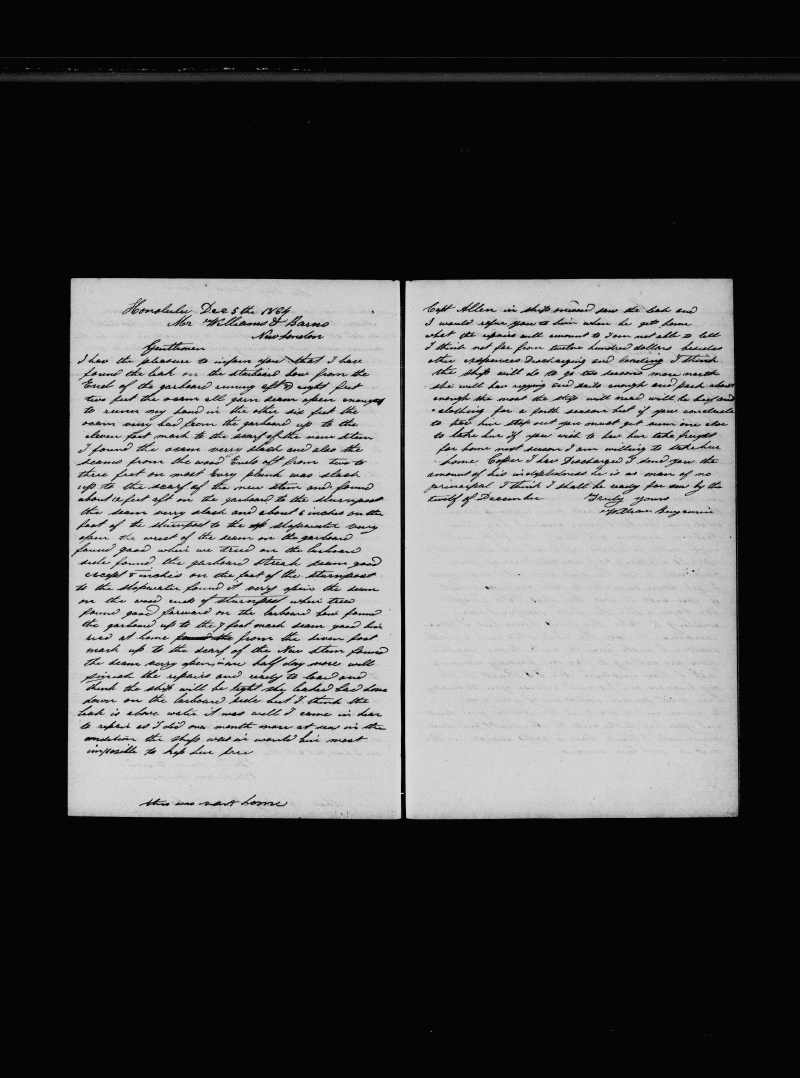 Honolulu Dec 5th 1864
Mor Williams & Barns
New London
Gentlemen
I have the pleasure to inform you that I have
found the leak on the starbard bow from the
End of the garboard runing aft eight feet
two feet the ocam all gorn seam open enough
to runn my hand in the other six feet the
ocam very bad from the garboard up to the
eleven foot mark to the scarf of the new stem
I found the ocam very slack and also the
seams from the wood Ends aft from two to
three feet on most evry plank was slack
up to the scarf of the new stem and found
about 12 feet aft on the garboard to the sturnpost
the seam verry slack and about 6 inches on the
foot of the sturnpost to the stopwater very
open the wrest of the seam on the garboard
found good when we tried on the larboard
side found the garboard streak seam good
except 8 inches on the foot of the sturnpost
to the stopwater found it very open the seam
on the wood ends of sturnpost when tried
found good forward on the larboard bow found
the garboard up to the 7 foot mark seam good
at home from the seven foot
mark up to the scarf of the New stem found
the seam verry open one half day more will
finish the repairs and ready to load and
think the ship will be tight she leaked bad
down on the larboard side but I think the
leak is above water it was well I came in hear
to repair as I did one month more at sea in the
condition the ship was in would bin most
imposible to kep her free
this was sent home
Capt Allen in ship saw the leak and
I would refur you to him when he gets home
what the repairs will amount to I am not able to tell
I think not far from twelve hundred dollars besides
other expences Discharging and loading I think
the ship will do to go two seasons more north
she will have rigging and sails enough and pork about
enough the most the ship will need will be beef and
clothing for a forth season but if you conclude
to have her stop out you must get some one else
to take her if you wish to have her take freight
for home next season I am willing to take her
home Coper I have Discharged I send you the
amount of his indeptedness he is a man of no
principal I think I shall be ready for sea by the
twelf of December Truly yours
William Benjamin